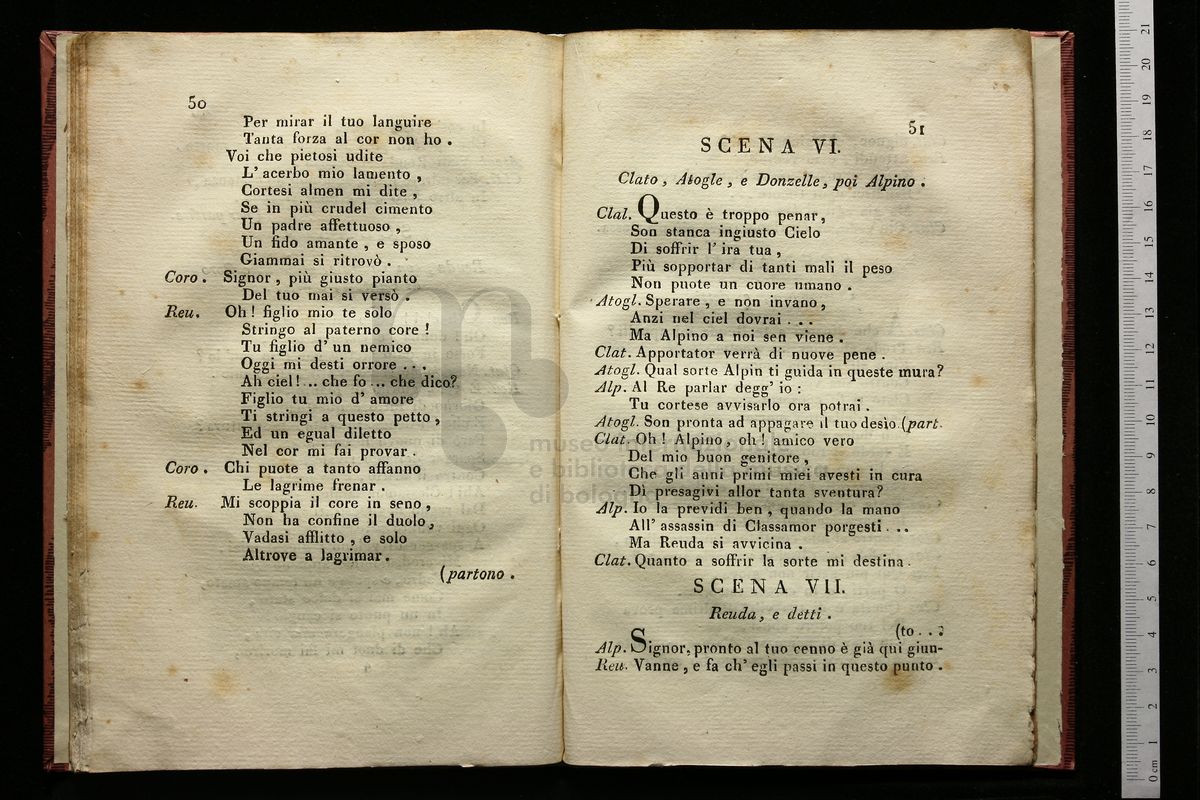 50
Per mirar il tuo languire
Tanta forza al cor non ho .
Voi che pietosi udite
L' acerbo mio lamento ,
Cortesi almen mi dite ,
Se in più crudel cimento
Un padre affettuoso ,
Un fido amante , e sposo
Giammai si ritrovò .
Coro . Signor , più giusto pianto
Del tuo mai si versò .
Reu. Oh ! figlio mio te solo
Stringo al paterno core !
Tu figlio d' un nemico
Oggi mi desti orrore . . .
Ah ciel ! .. che fo ... che dico?
Figlio tu mio d' amore
Ti stringi a questo petto ,
Ed un egual diletto
Nel cor mi fai provar .
Coro . Chi puote a tanto affanno
Le lagrime frenar .
Reu. Mi scoppia il core in seno ,
Non ha confine il duolo ,
Vadasi afflitto , e solo
Altrove a lagrimar .
(partono .
51
SCENA VI.
Clato , Atogle , e Donzelle , poi Alpino .
Clal. Questo è troppo penar ,
Son stanca ingiusto Cielo
Di soffrir l' ira tua ,
Più sopportar di tanti mali il peso
Non puote un cuore umano .
Atogl. Sperare , e non invano ,
Anzi nel ciel dovrai . . .
Ma Alpino a noi sen viene .
Clat. Apportator verrà di nuove pene .
Atogl. Qual sorte Alpin ti guida in queste mura?
Alp. Al Re parlar degg' io :
Tu cortese avvisarlo ora potrai .
Atogl. Son pronta ad appagare il tuo desìo (part.
Clat. Oh ! Alpino , oh ! amico vero
Del mio buon genitore ,
Che gli anni primi miei avesti in cura
Di presagivi allor tanta sventura?
Alp. Io la previdi ben , quando la mano
All' assassin di Classamor porgesti . ..
Ma Reuda si avvicina .
Clat. Quanto a soffrir la sorte mi destina .
SCENA VII.
Reuda , e detti .
(to . . .
Alp. Signor, pronto al tuo cenno è già qui giun-
Reu. Vanne , e fa ch' egli passi in questo punto .
museo internazionale
e biblioteca della musica
di bologna
0 cm 1 2 3 4 5 6 7 8 9 10 11 12 13 14 15 16 17 18 19 20 21